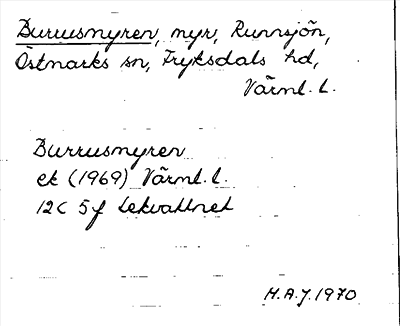 Burrusmyren, myr, Runnsjön,
Östmarks sn, Fryksdals hd,
Värml. l.
Burrusmyren
ek (1969) Värml. l.
12C 5f Lekvattnet
H.A.J. 1970